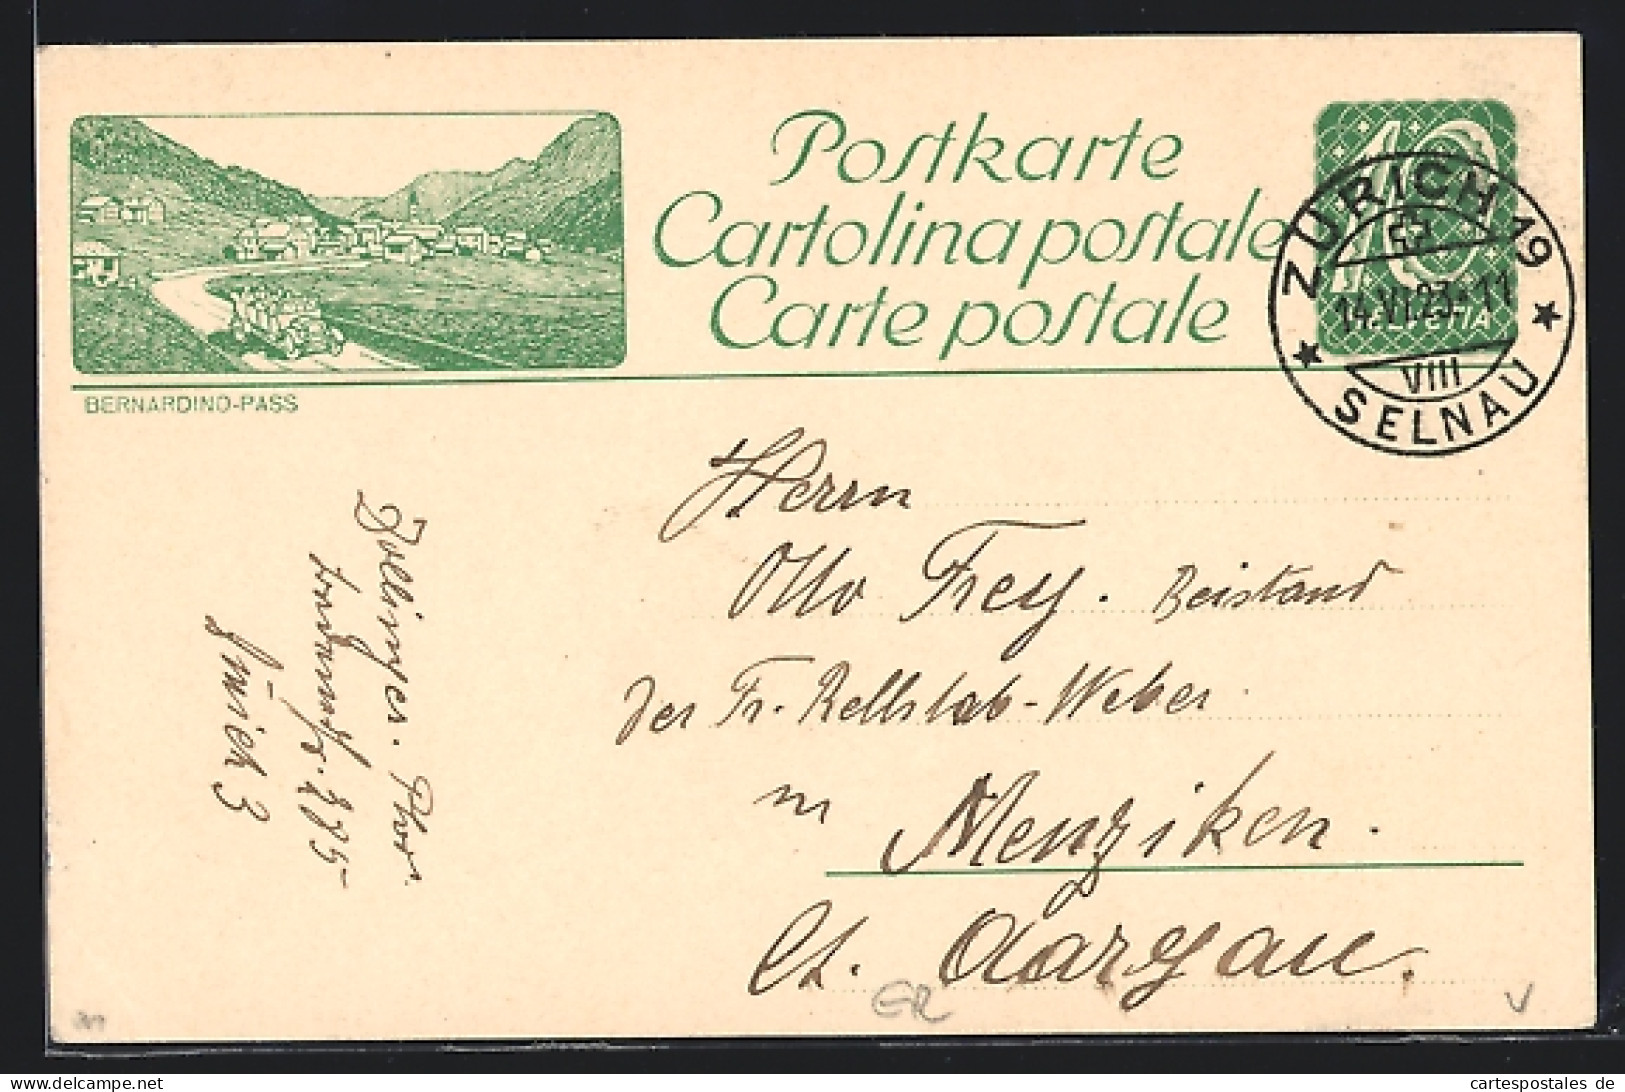 Postkarte
Cartolina postale
Carte postale
10
HELVETIA
ZÜRICH 19
14.VI.23.-11
VIII
SELNAU
BERNARDINO-PASS
Herrn
Otto Frey. Beistand
der Fr. Rellstab-Weber
in Menziken.
Ct. Aargau.
Zollinger.
275
Zürich 3
ER
V
cartespostales de
cartespostales.de